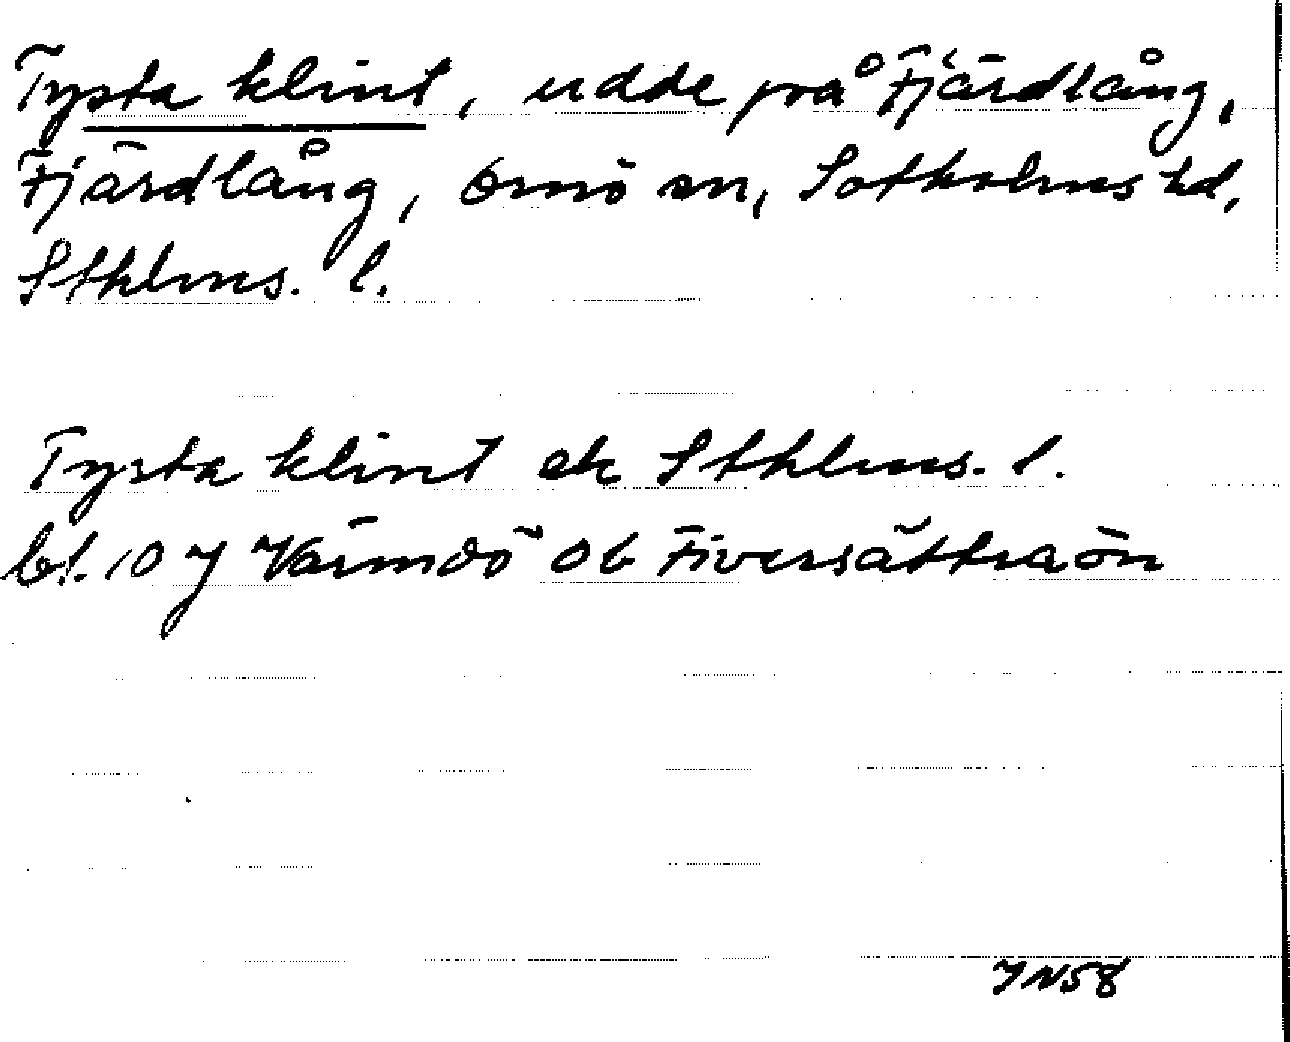 Tysta klint, udde på Fjärdlång,
Fjärdlång, Ornö sn, Sotholms hd,
Sthlms. l.
Tysta klint ek Sthlms. l.
bl. 10 J Värmdö Ob Fiversätraön
JN58